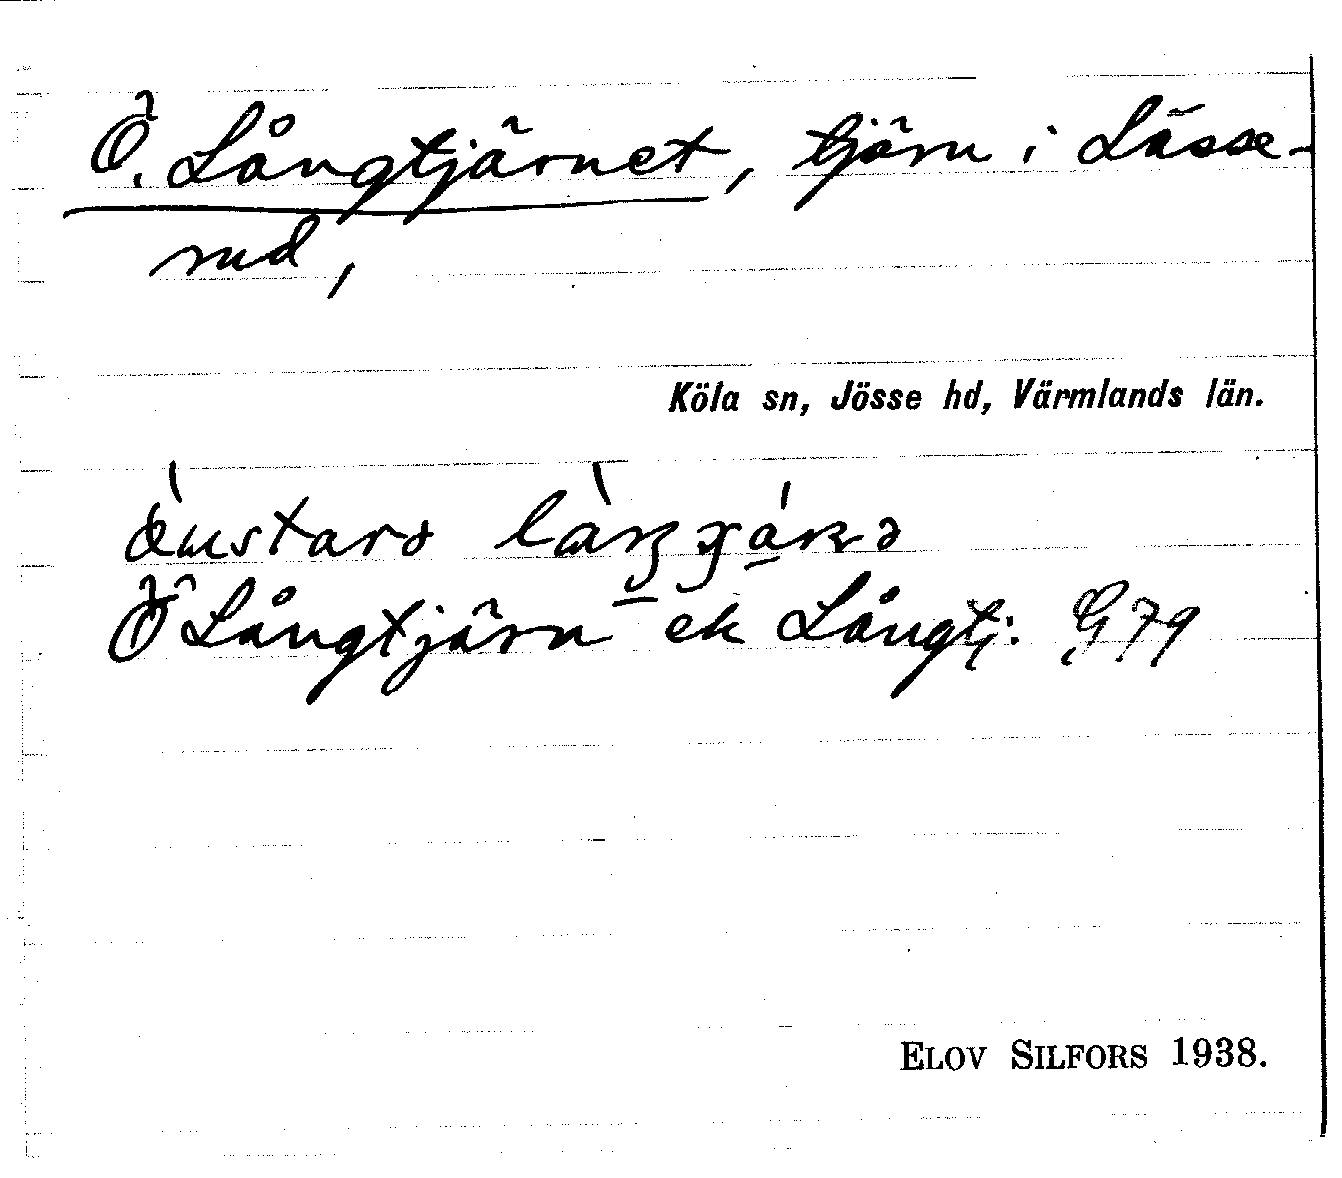 Ö. Långtjärnet, tjärn i Lässe-
rud,
Köla sn, Jösse hd, Värmlands län.
Ö Långtjärn ek Långtj. G79
ELOV SILFORS 1938.